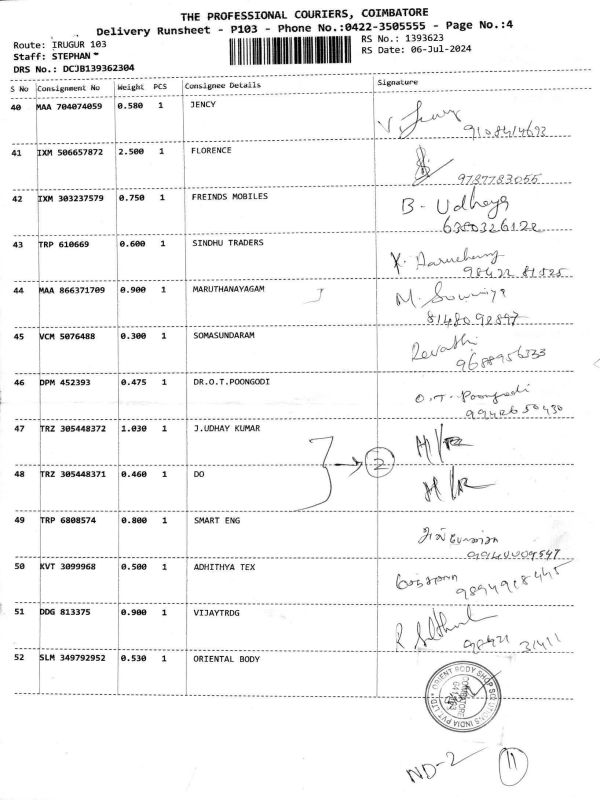 THE PROFESSIONAL COURIERS, COIMBATORE
Delivery Runsheet - P103 - Phone No.:0422-3505555 - Page No.:4
Route: IRUGUR 103
RS No.: 1393623
Staff: STEPHAN *
RS Date: 06-Jul-2024
DRS No.: DCJB139362304
S No Consignment No Weight PCS Consignee Details Signature
40 MAA 704074059 0.580 1 JENCY
9108414692
41 IXM 506657872 2.500 1 FLORENCE
9787783055
42 IXM 303237579 0.750 1 FREINDS MOBILES B. Udhaya
6380326122
43 TRP 610669 0.600 1 SINDHU TRADERS
98422 81525
44 MAA 866371709 0.900 1 MARUTHANAYAGAM M. Sowmiya
8148092897
45 VCM 5076488 0.300 1 SOMASUNDARAM Revathi
9688956333
46 DPM 452393 0.475 1 DR.O.T.POONGODI O.T. Poongodi
9942650430
47 TRZ 305448372 1.030 1 J.UDHAY KUMAR
2
48 TRZ 305448371 0.460 1 DO
49 TRP 6808574 0.800 1 SMART ENG
50 KVT 3099968 0.500 1 ADHITHYA TEX
9894918445
51 DDG 813375 0.900 1 VIJAYTRDG
98421 31411
52 SLM 349792952 0.530 1 ORIENTAL BODY
ORIENT BODY SHOP SOLUTIONS INDIA PVT LTD
COIMBATORE
ND-2 11